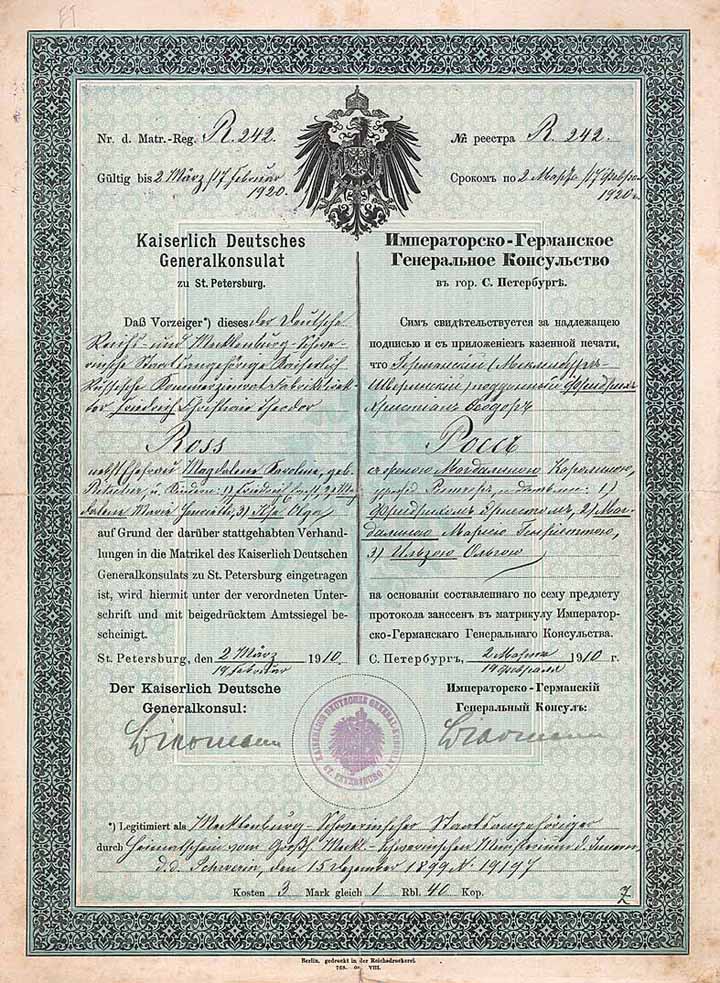 ET
Nr. d. Matr.-Reg. R. 242.
Gültig bis 2 März/17 Februar
1920.
Kaiserlich Deutsches
Generalkonsulat
zu St. Petersburg.
Daß Vorzeiger*) dieses der Deutsche
Reichs- und Mecklenburg-Schwe-
rinsche Staatsangehörige Kaiserlich
Russische Fabrikdirek-
tor Friedrich Christian Theodor
Ross
nebst Ehefrau Magdalene Karoline, geb.
u. Kindern: 1) Friedrich 2) Mag-
dalene Marie 3) Olga
auf Grund der darüber stattgehabten Verhand-
lungen in die Matrikel des Kaiserlich Deutschen
Generalkonsulats zu St. Petersburg eingetragen
ist, wird hiermit unter der verordneten Unter-
schrift und mit beigedrücktem Amtssiegel be-
scheinigt.
St. Petersburg, den 2 März 1910.
Februar
Der Kaiserlich Deutsche
Generalkonsul:
№ реестра R. 242.
Срокомъ по 2 Марта/17 Февраля
1920 г.
Императорско-Германское
Генеральное Консульство
въ гор. С. Петербургѣ.
Симъ свидѣтельствуется за надлежащею
подписью и съ приложеніемъ казенной печати,
что Германскій (Мекленбургъ-
Шверинскій) подданный Фридрихъ
Христіанъ Теодоръ
Россъ
съ женою Магдаленою Каролиною,
урожд. и дѣтьми: 1)
Фридрихомъ Эрнестомъ, 2) Маг-
далиною Маріею Генріеттою,
3) Ильзою Ольгою
на основаніи составленнаго по сему предмету
протокола занесенъ въ матрикулу Император-
ско-Германскаго Генеральнаго Консульства.
С. Петербургъ, 2 Марта 1910 г.
Февраля
Императорско-Германскій
Генеральный Консулъ:
KAISERLICH DEUTSCHES GENERAL-KONSULAT
ST. PETERSBURG
*) Legitimiert als Mecklenburg-Schwerinscher Staatsangehöriger
durch Heimatschein vom Großh. Meckl.-Schwerinschen Ministerium d. Innern,
d.d. Schwerin, den 15 Dezember 1899 N. 19197
Kosten 3 Mark gleich 1 Rbl. 40 Kop.
Berlin, gedruckt in der Reichsdruckerei.
VIII.